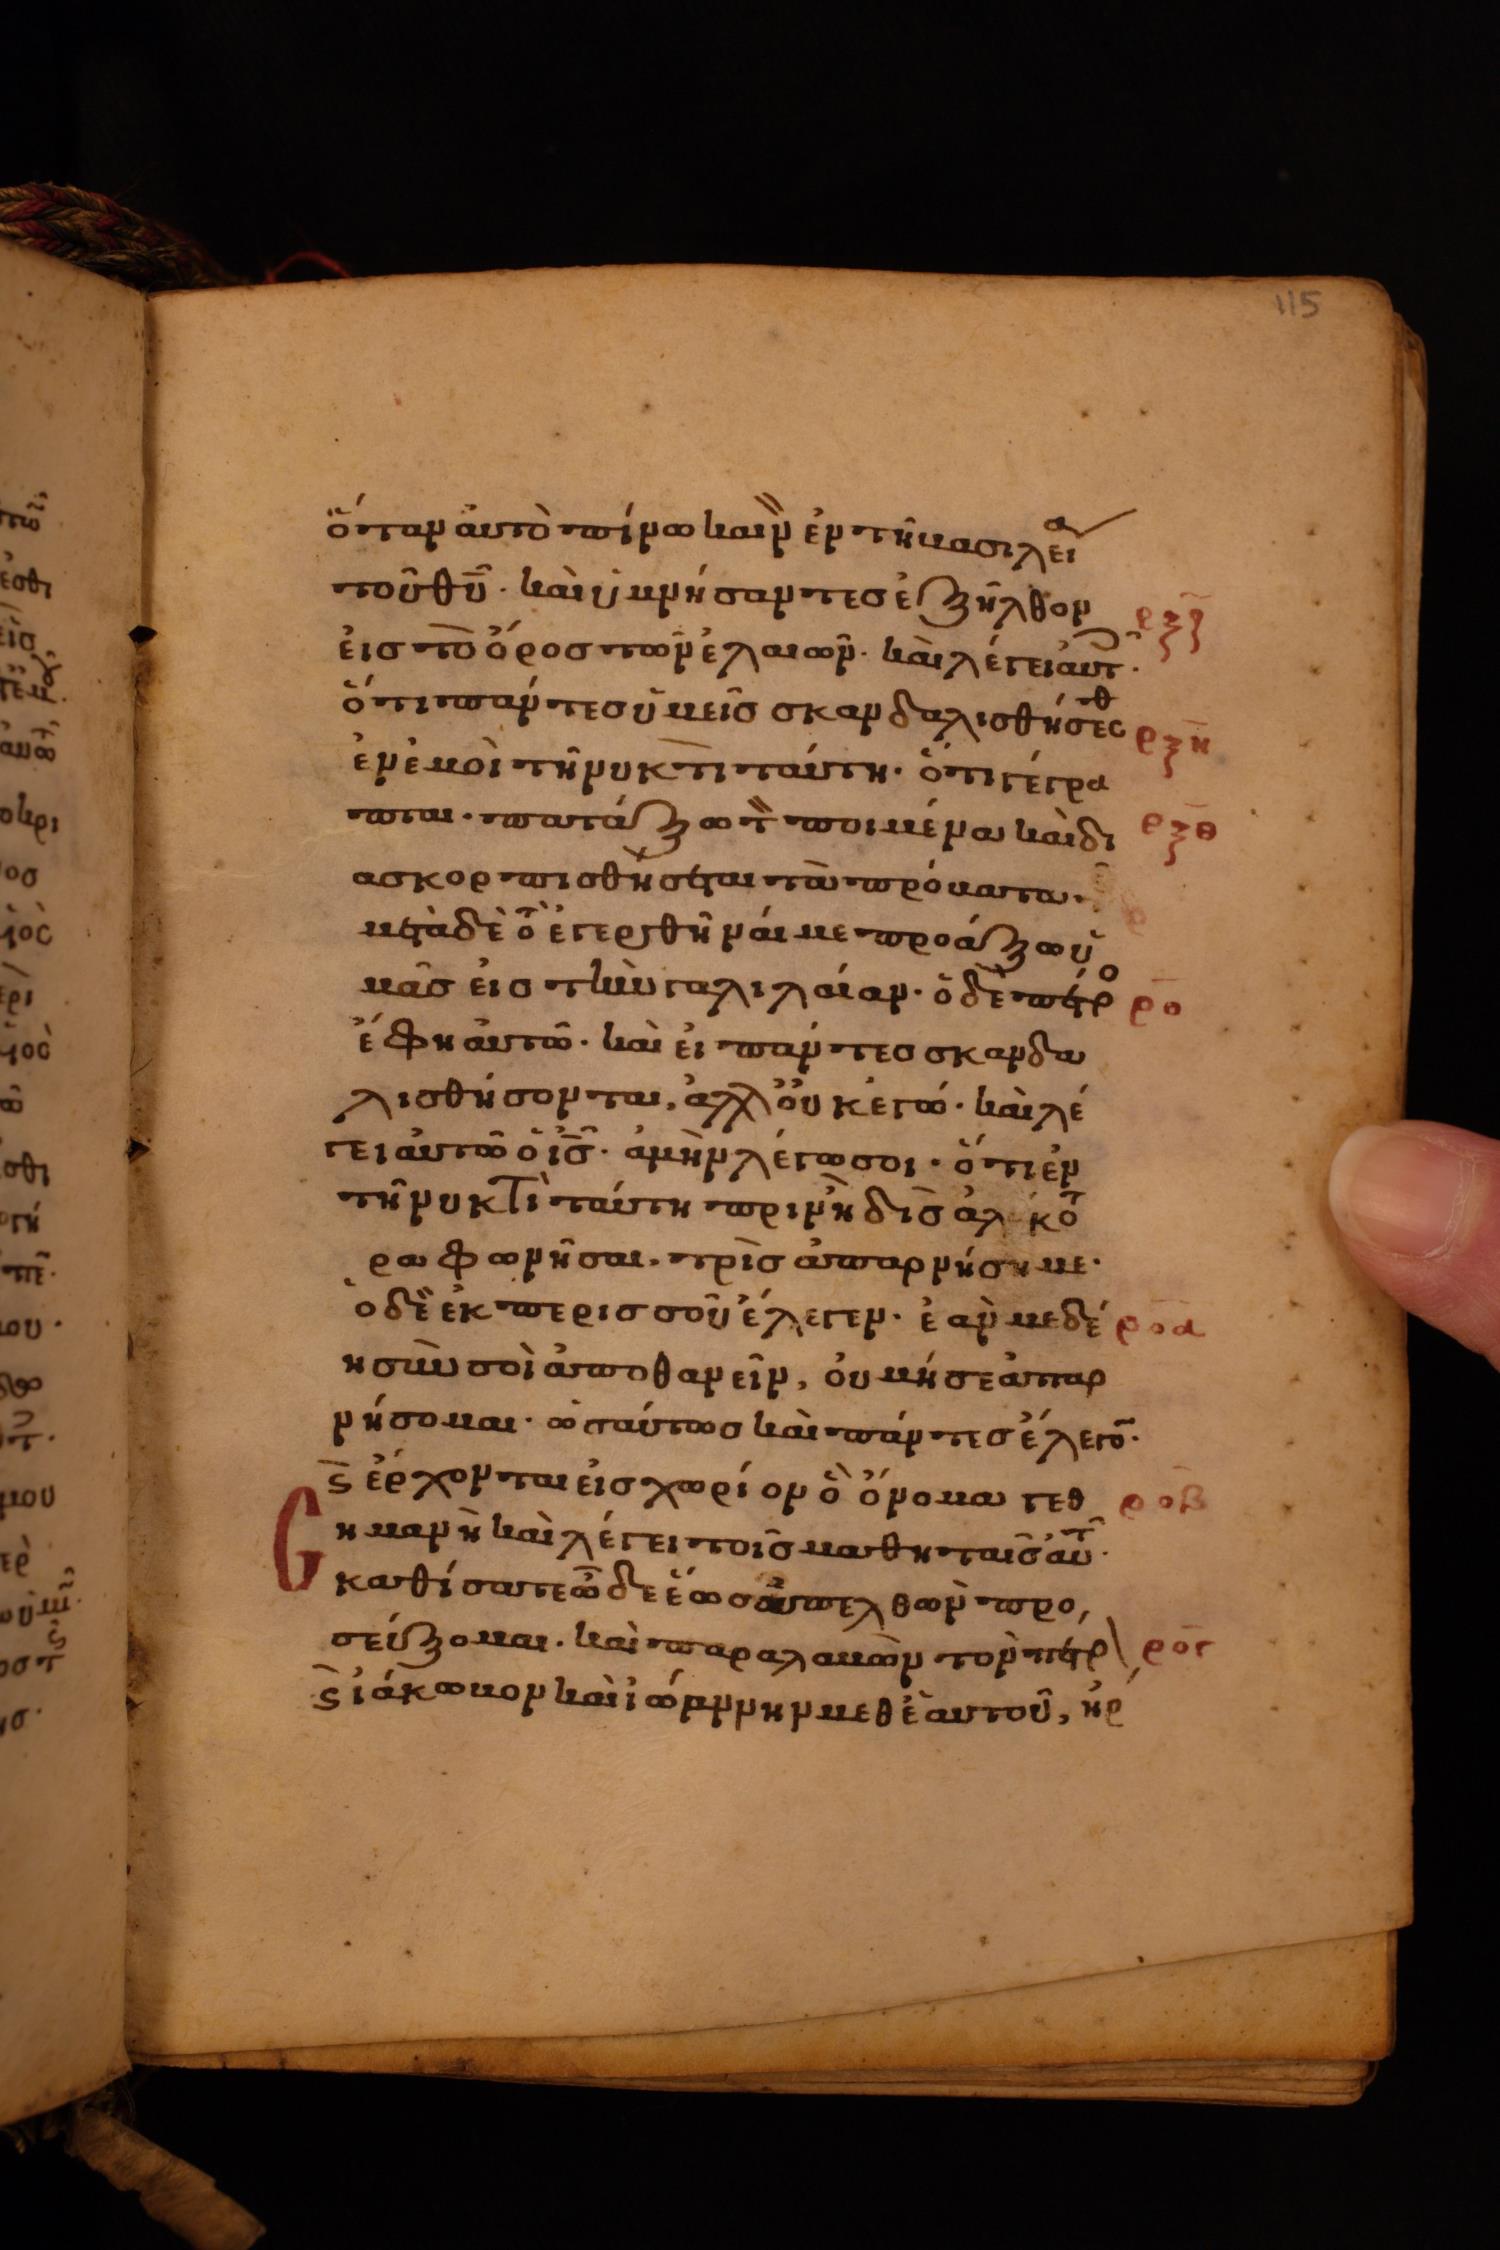 115
ὅταν ἀυτὸ πίνω καινὸν ἐν τῆ βασιλεία
τοῦ θῦ· καὶ ὑμνήσαντες ἐξῆλθον
ρξζ
ἐις τὸ ὄρος τῶν ἐλαιῶν· καὶ λέγει ἀυτ·
ὅτι πάντες ὑμεῖς σκανδαλισθήσεσθ
ρξη
ἐν ἐμοὶ τῆ νυκτὶ ταύτη· ὅτι γέγρα
πται· πατάξω τὸν ποιμένα καὶ δι
ρξθ
ασκορπισθήσεται τὰ πρόβατα·
μετὰ δὲ τὸ ἐγερθῆναί με προάξω ὑ
μᾶς ἐις τὴν γαλιλαίαν· ὁ δὲ πέτρο
ρο
ἔφη ἀυτῶ· καὶ ἐι πάντες σκανδα
λισθήσονται, ἀλλ ὀυκ ἐγώ· καὶ λέ
γει ἀυτῶ ὁ ἰς· ἀμὴν λέγω σοι· ὅτι ἐν
τῆ νυκτὶ ταύτη πρινὴ δὶς ἀλέκτο
ρα φωνῆσαι, τρὶς ἀπαρνήση με·
ὁ δὲ ἐκ περισσοῦ ἔλεγεν· ἐὰν με δέ
ροα
η σὺν σοὶ ἀποθανεῖν, ὀυ μή σε ἀπαρ
νήσομαι· ὡσαύτως καὶ πάντες ἔλεγο·
ϛ ἔρχονται ἐις χωρίον ὃ ὄνομα γεθ
ροβ
σημανὴ καὶ λέγει τοῖς μαθηταῖς ἀυτ·
καθίσατε ὧδε ἕως ἀπελθὼν προ,
σεύξομαι· καὶ παραλαβὼν τὸν πέτρ
ρογ
ϛ ἰάκωβον καὶ ἰωάννην μεθ ἑαυτοῦ, ἤρ